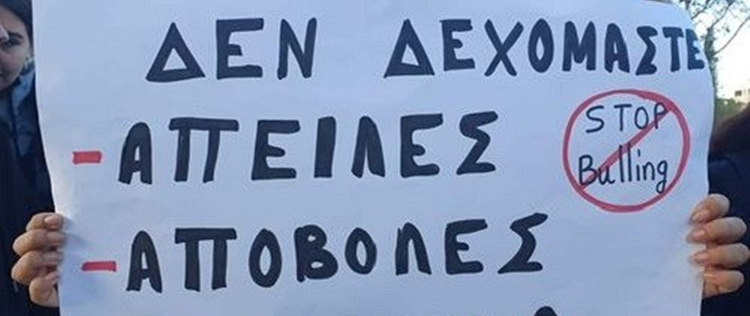 ΔΕΝ ΔΕΧΟΜΑΣΤΕ
-ΑΠΕΙΛΕΣ
-ΑΠΟΒΟΛΕΣ
STOP
Bulling